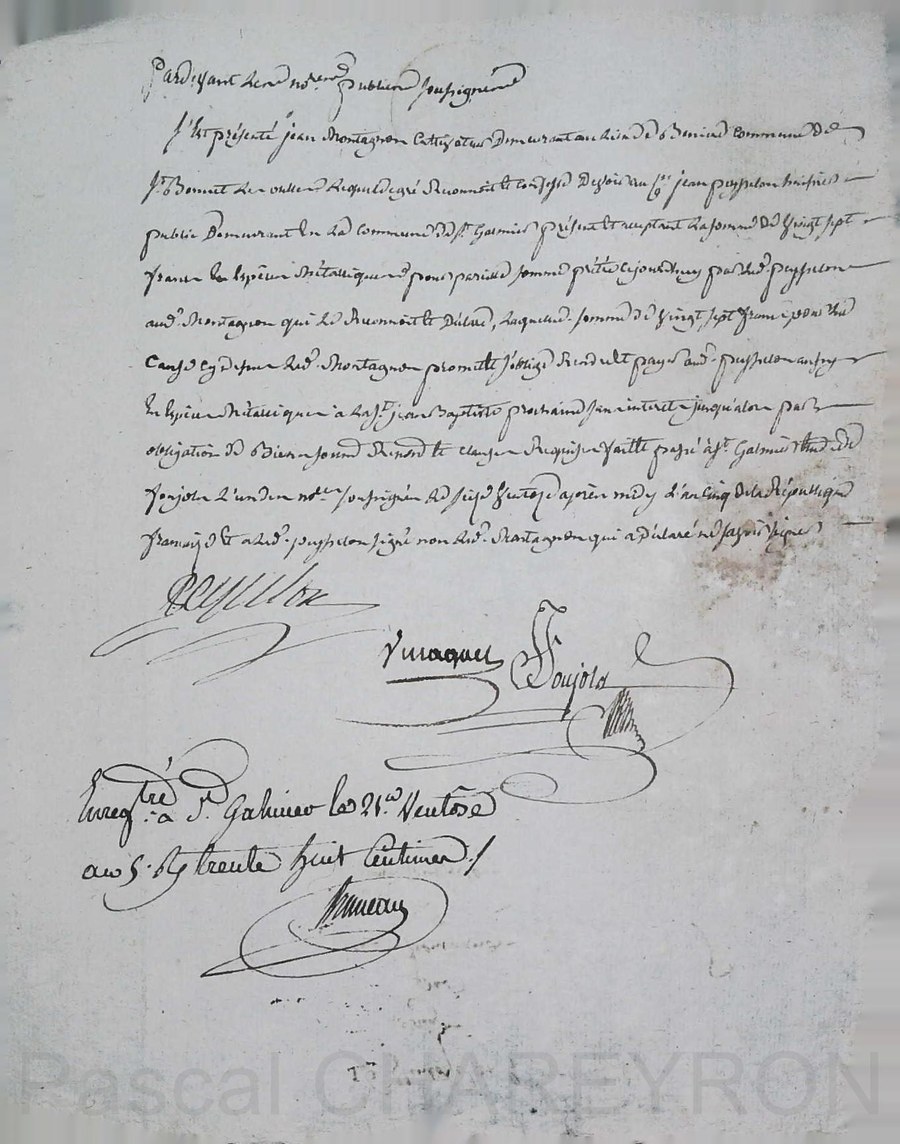 Pardevant les no.res publics soussignés
S'est présenté jean Montagnon Cultivateur Demeurant au lieu de commune de
St. Bonnet les oulles Lequel de gré Reconnoit et confesse Devoir au jean peysselon
public Demeurant en la Commune de St. Galmier présent et acceptant la somme de vingt sept
francs en Espèces Métalliques pour pareille somme prêtée cejourdhuy par led. peysselon
aud. Montagnon qui le Reconnoit et Déclare, Laquelle somme de vingt sept francs pour les
causes cy dessus led. Montagnon promet et s'oblige Rendre et payer aud. peysselon
En Espèces Métalliques à la St. jean Baptiste prochaine sans interet jusqu'alors par
obligation de Biens et clauses Requises fait et passé à St. Galmier Etude de
Soujola L'un des no.res soussignés le seize Ventose après midy L'an Cinq de la République
française et a led. peysselon signé non led. Montagnon qui a Déclaré ne savoir signer
Peysselon
Soujola
Enreg.tré à St. Galmier le 21. Ventôse
an 5. trente huit Centimes
Pascal CHAREYRON